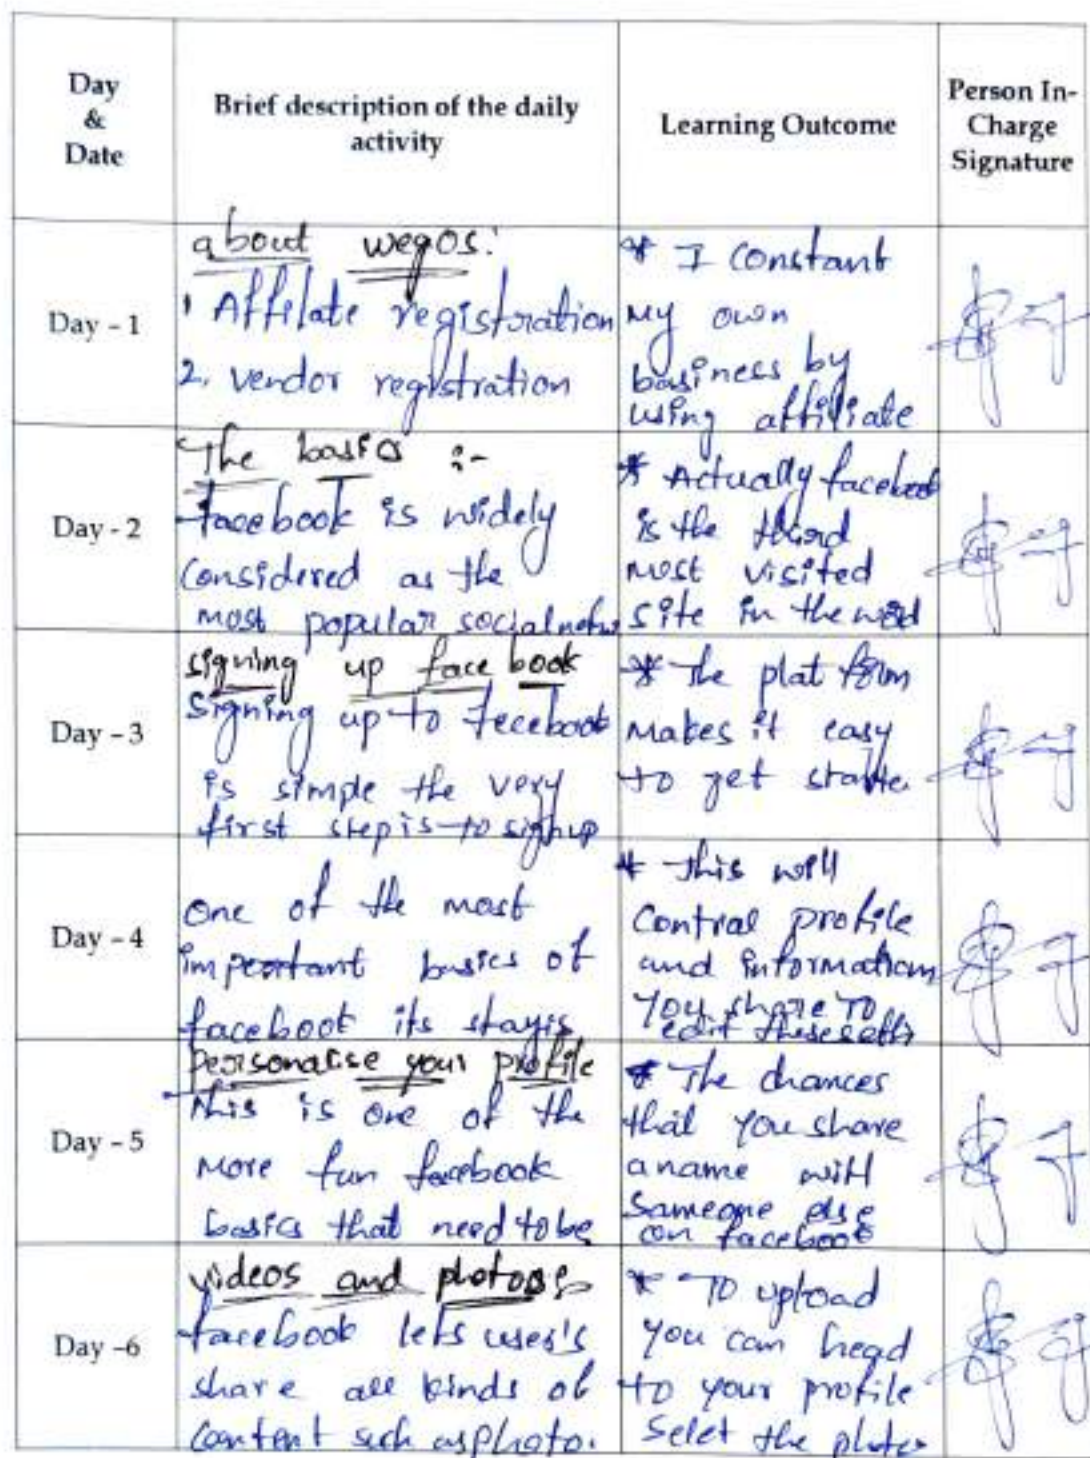 Day
&
Date
Brief description of the daily
activity
Learning Outcome
Person In-
Charge
Signature
Day - 1
about wegos:
1 Affilate registration
2. vendor registration
* I constant
my own
business by
using affiliate
Day - 2
The basics :-
facebook is widely
considered as the
most popular social netw
* Actually facebook
is the third
most visited
site in the world
Day - 3
signing up face book
Signing up to fecebook
is simple the very
first step is to signup
* The plat form
makes it easy
to get starte
Day - 4
one of the most
important basics of
facebook its
* This will
Control profile
and information
you share To
edit these
Day - 5
personalise your profile
this is one of the
more fun facebook
basics that need to be
* The chances
that you share
a name with
someone else
on facebook
Day -6
videos and photos
facebook lets user's
share all kinds of
content such as photo.
* To upload
you can head
to your profile
Selet the photo